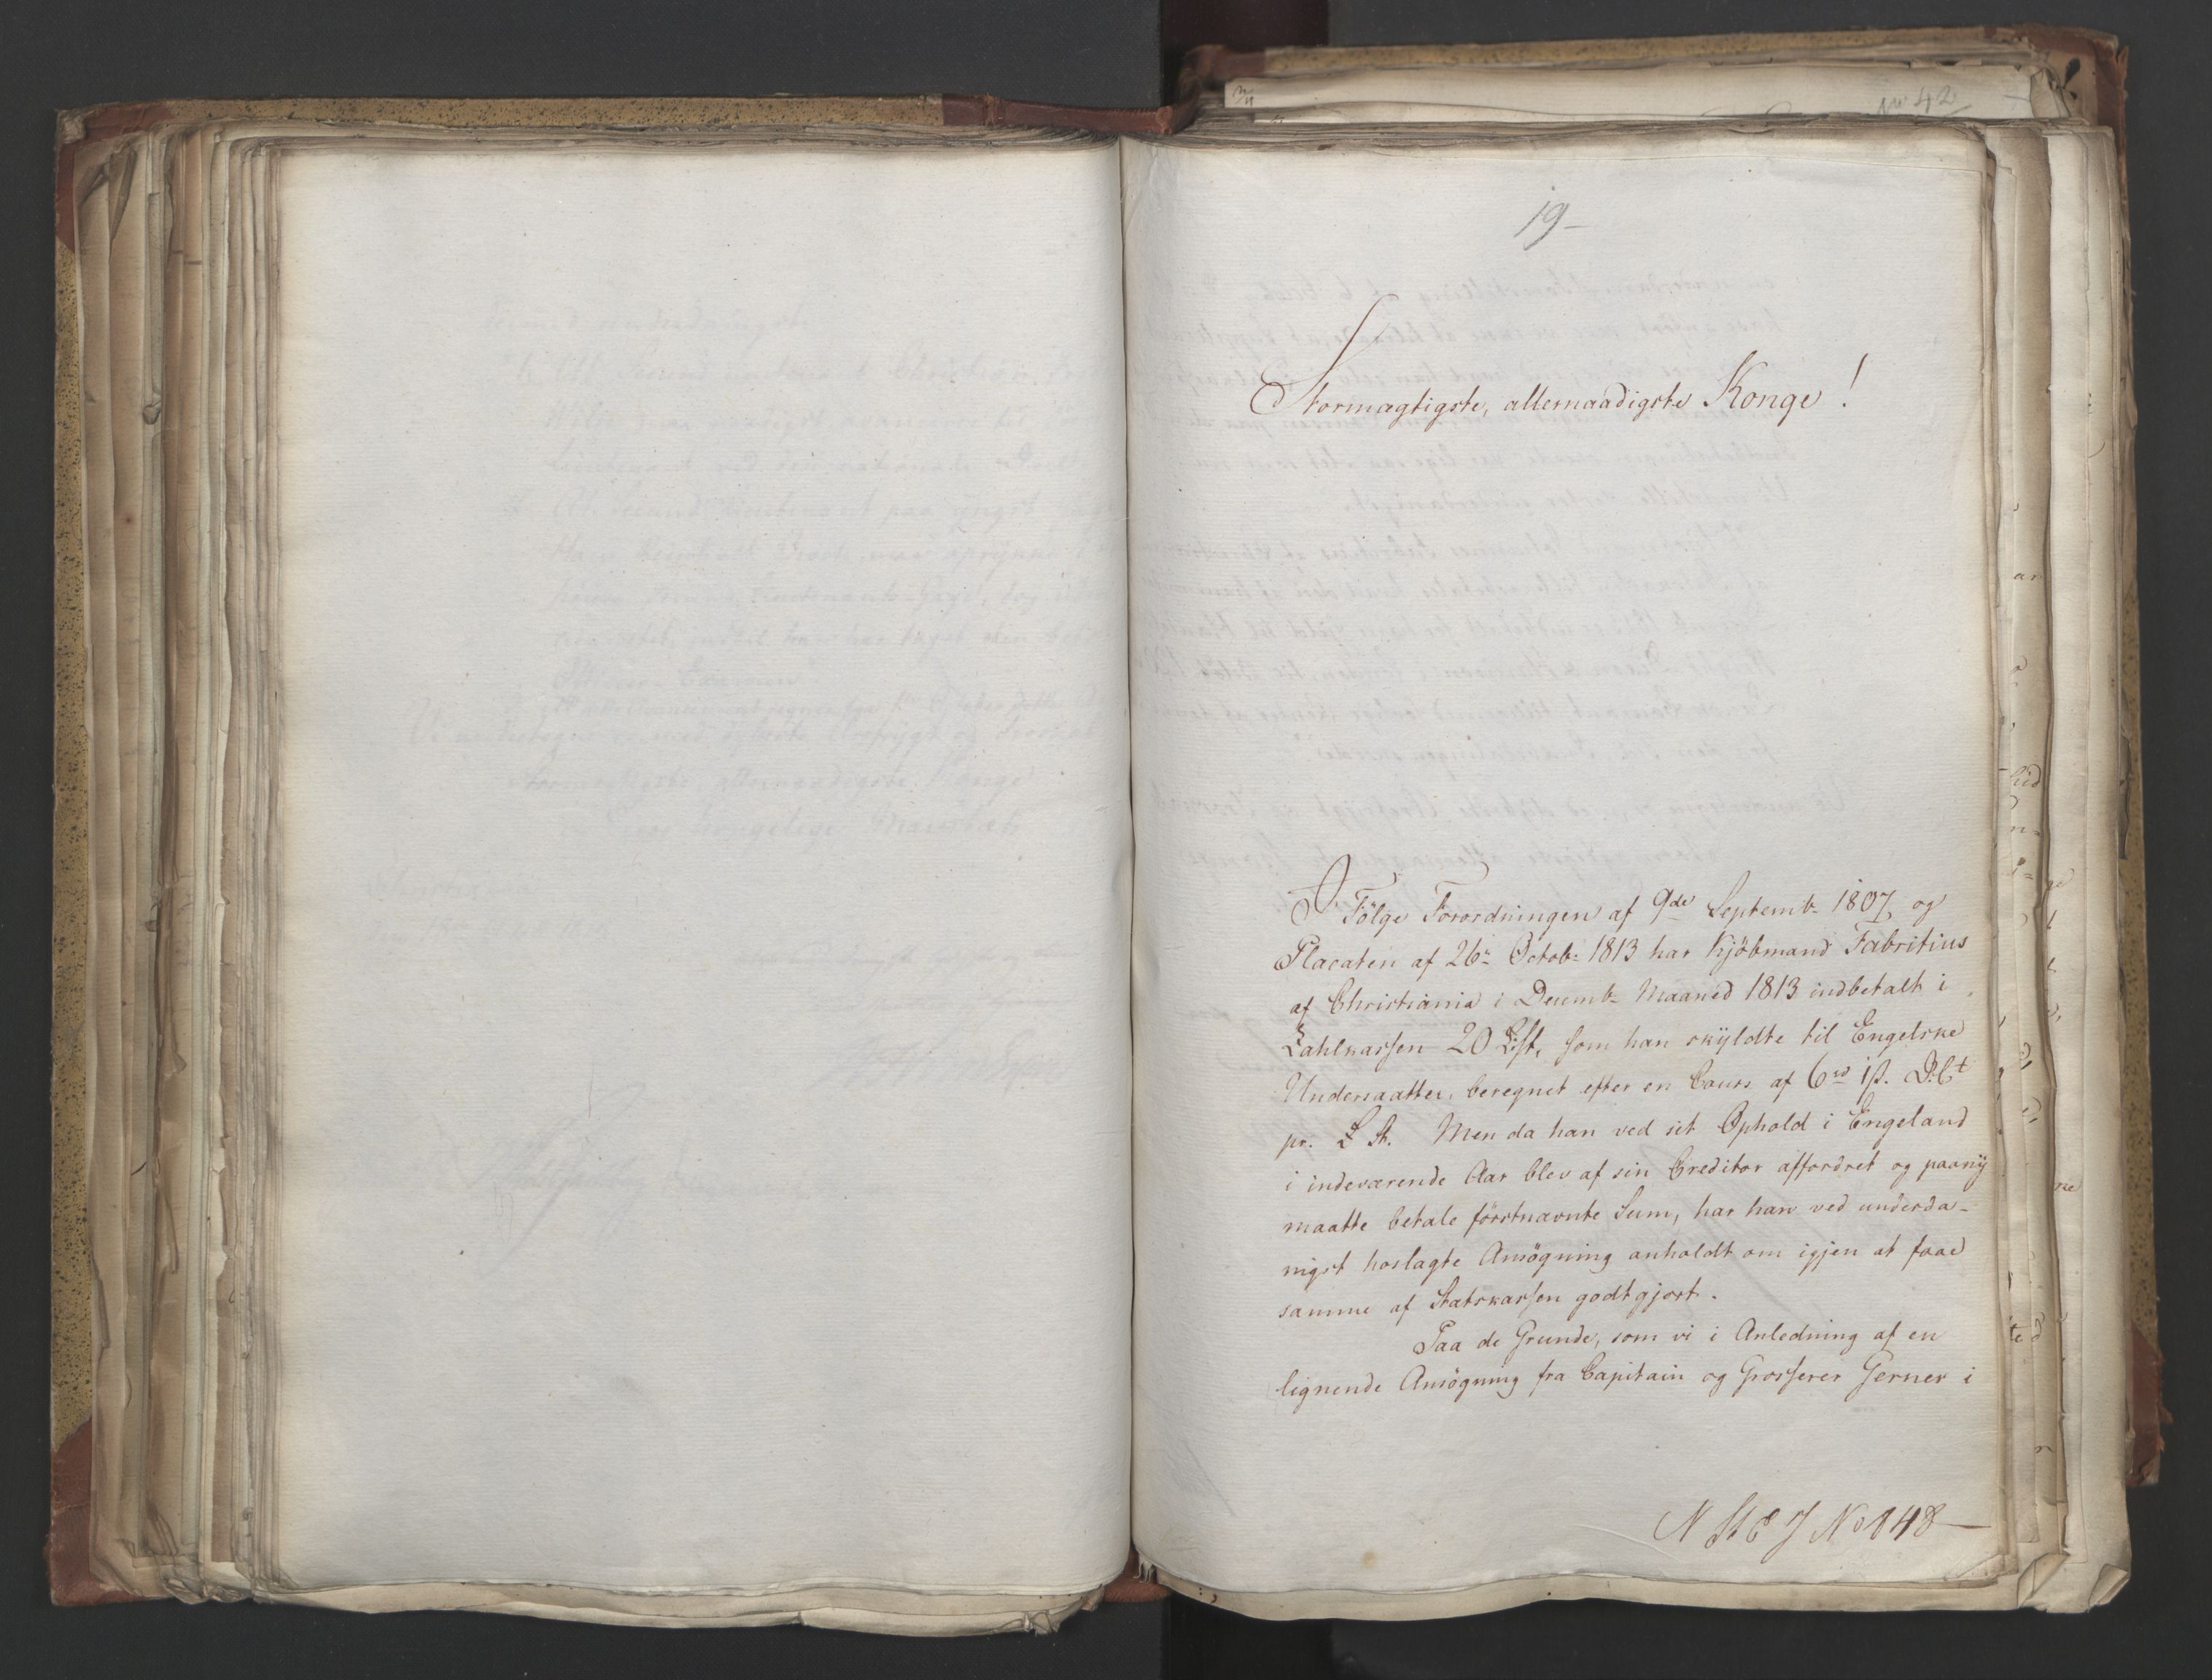 No 42
19-
Stormagtigste, allernaadigste Konge!
I Fölge Forordningen af 9de Septembr 1807, og
Placaten af 26r Octobr 1813 har Kjöbmand Fabritius
af Christiania i Decembr Maaned 1813 indbetalt i
Zahlkassen 20 L.st, som han skyldte til Engelske
Undersaatter, beregnet efter en Cours af 6rd 1ß. D.Ct
pr. L St. Men da han ved sit Ophold i Engeland
i indeværende Aar blev af sin Creditor affordret og paany
maatte betale förstnævnte Sum, har han ved underda-
nigst hoslagte Ansögning anholdt om igjen at faae
samme af Statskassen godtgjort.
Paa de Grunde, som vi i Anledning af en
lignende Ansögning fra Capitain og Grosserer Gerner i
N St C J No 848